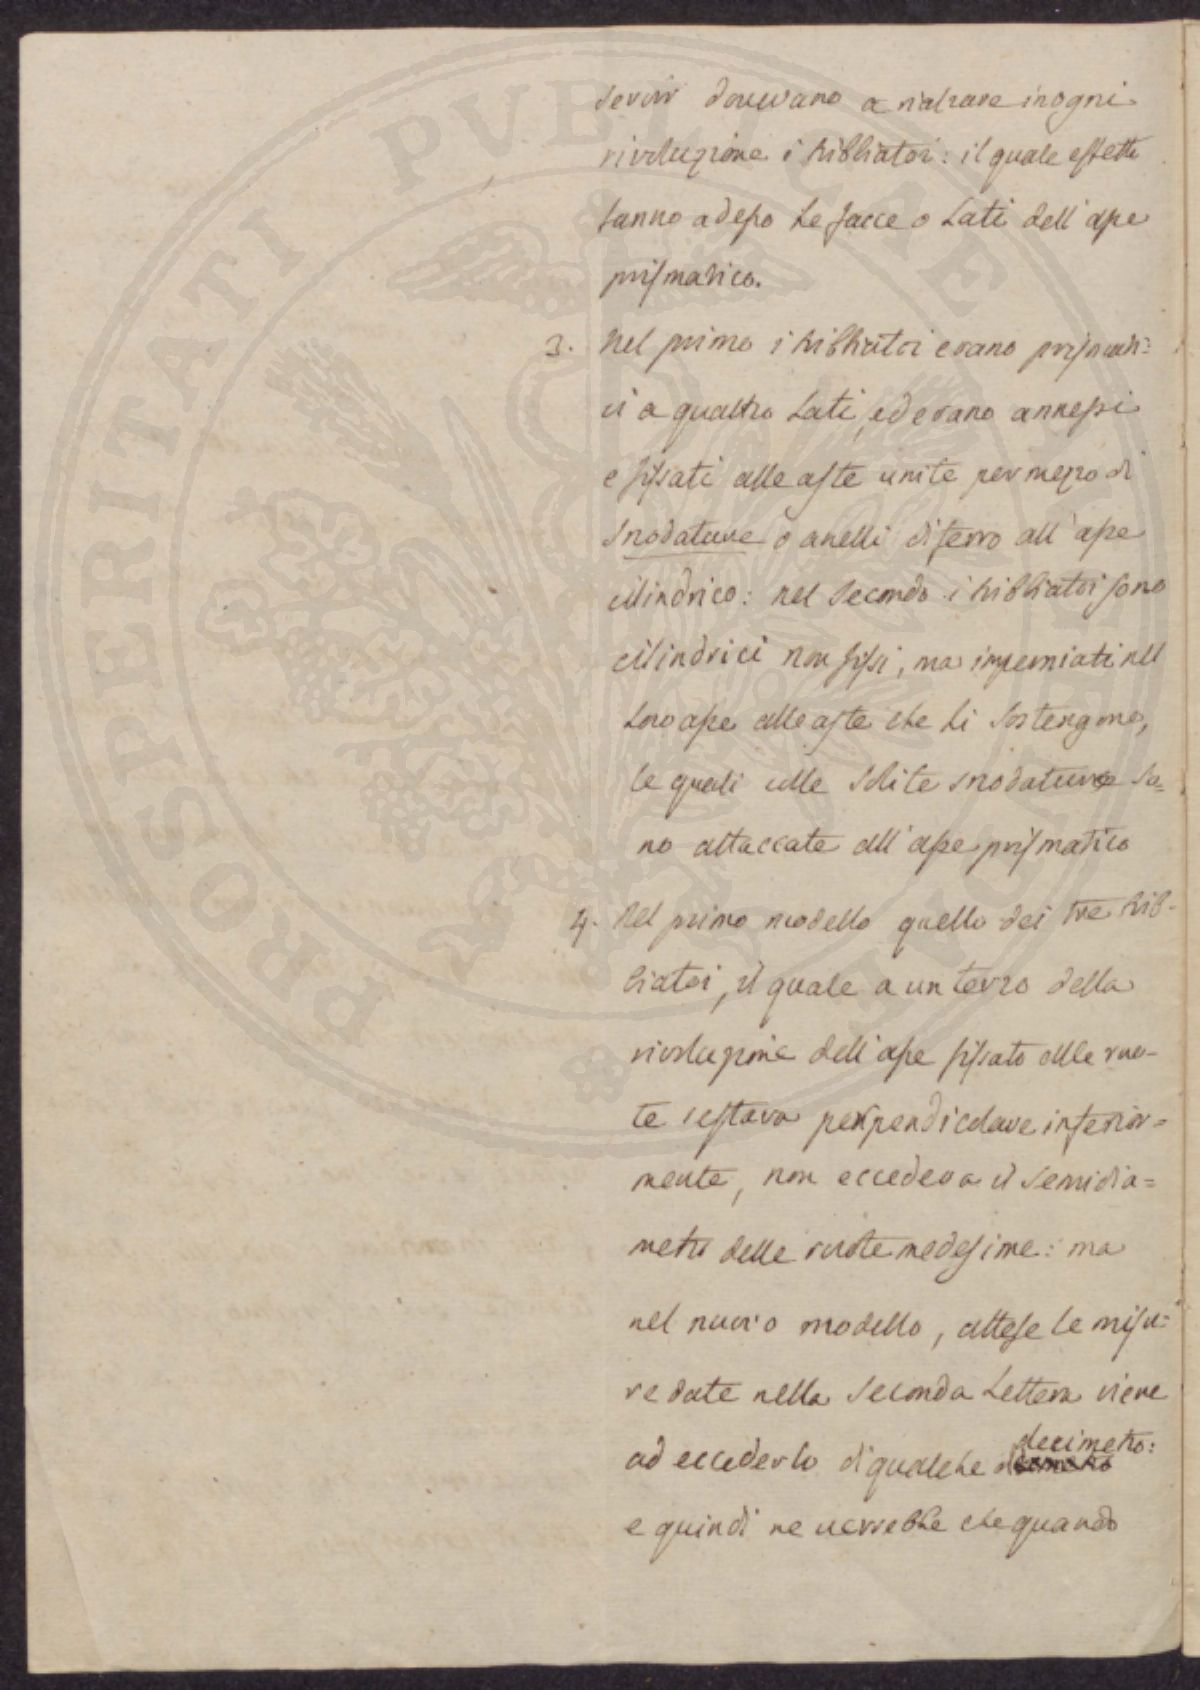 servir dovevano a rialzare in ogni
rivoluzione i tribbiatoi: il quale effetto
fanno adesso le facce o lati dell'asse
prismatico.
3. Nel primo i tribbiatoi erano prismati=
ci a quattro lati, ed erano annessi
e fissati alle aste unite per mezzo di
snodature o anelli di ferro all'asse
cilindrico: nel secondo i tribbiatoi sono
cilindrici non fissi, ma imperniati nel
loro asse alle aste che li sostengono,
le quali colle solite snodature so=
no attaccate all'asse prismatico
4. Nel primo modello quello dei tre trib-
biatoi, il quale a un terzo della
rivoluzione dell'asse fissato alle ruo-
te restava perpendicolare inferior=
mente, non eccedeva il semidia=
metro delle ruote medesime: ma
nel nuovo modello, attese le misu=
re date nella seconda Lettera viene
ad eccederlo di qualche decimetro:
e quindi ne verrebbe che quando
PROSPERITATI PVBLICAE